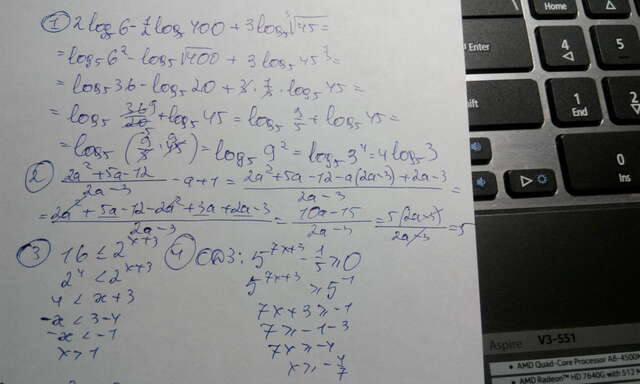 ① 2log₅6 - 1/2 log₅400 + 3log₅∛45 =
= log₅6² - log₅√400 + 3log₅45^(1/3) =
= log₅36 - log₅20 + 3·1/3·log₅45 =
= log₅ 36/20 + log₅45 = log₅ 9/5 + log₅45 =
= log₅(9/5 · 45) = log₅9² = log₅3⁴ = 4log₅3
② (2a²+5a-12)/(2a-3) - a+1 = (2a²+5a-12-a(2a-3)+2a-3)/(2a-3) =
= (2a²+5a-12-2a²+3a+2a-3)/(2a-3) = (10a-15)/(2a-3) = 5(2a-3)/(2a-3) = 5
③ 16 ≤ 2^(x+3)
2⁴ < 2^(x+3)
4 < x+3
-x < 3-4
-x < -1
x > 1
④ ОДЗ: 5^(7x+3) - 1/5 ≥ 0
5^(7x+3) ≥ 5⁻¹
7x+3 ≥ -1
7x ≥ -1-3
7x ≥ -4
x ≥ -4/7
Enter
4
5
1
End
2
Aspire V3-551
• AMD Quad-Core Processor A8-4500M
• AMD Radeon™ HD 7640G with 512